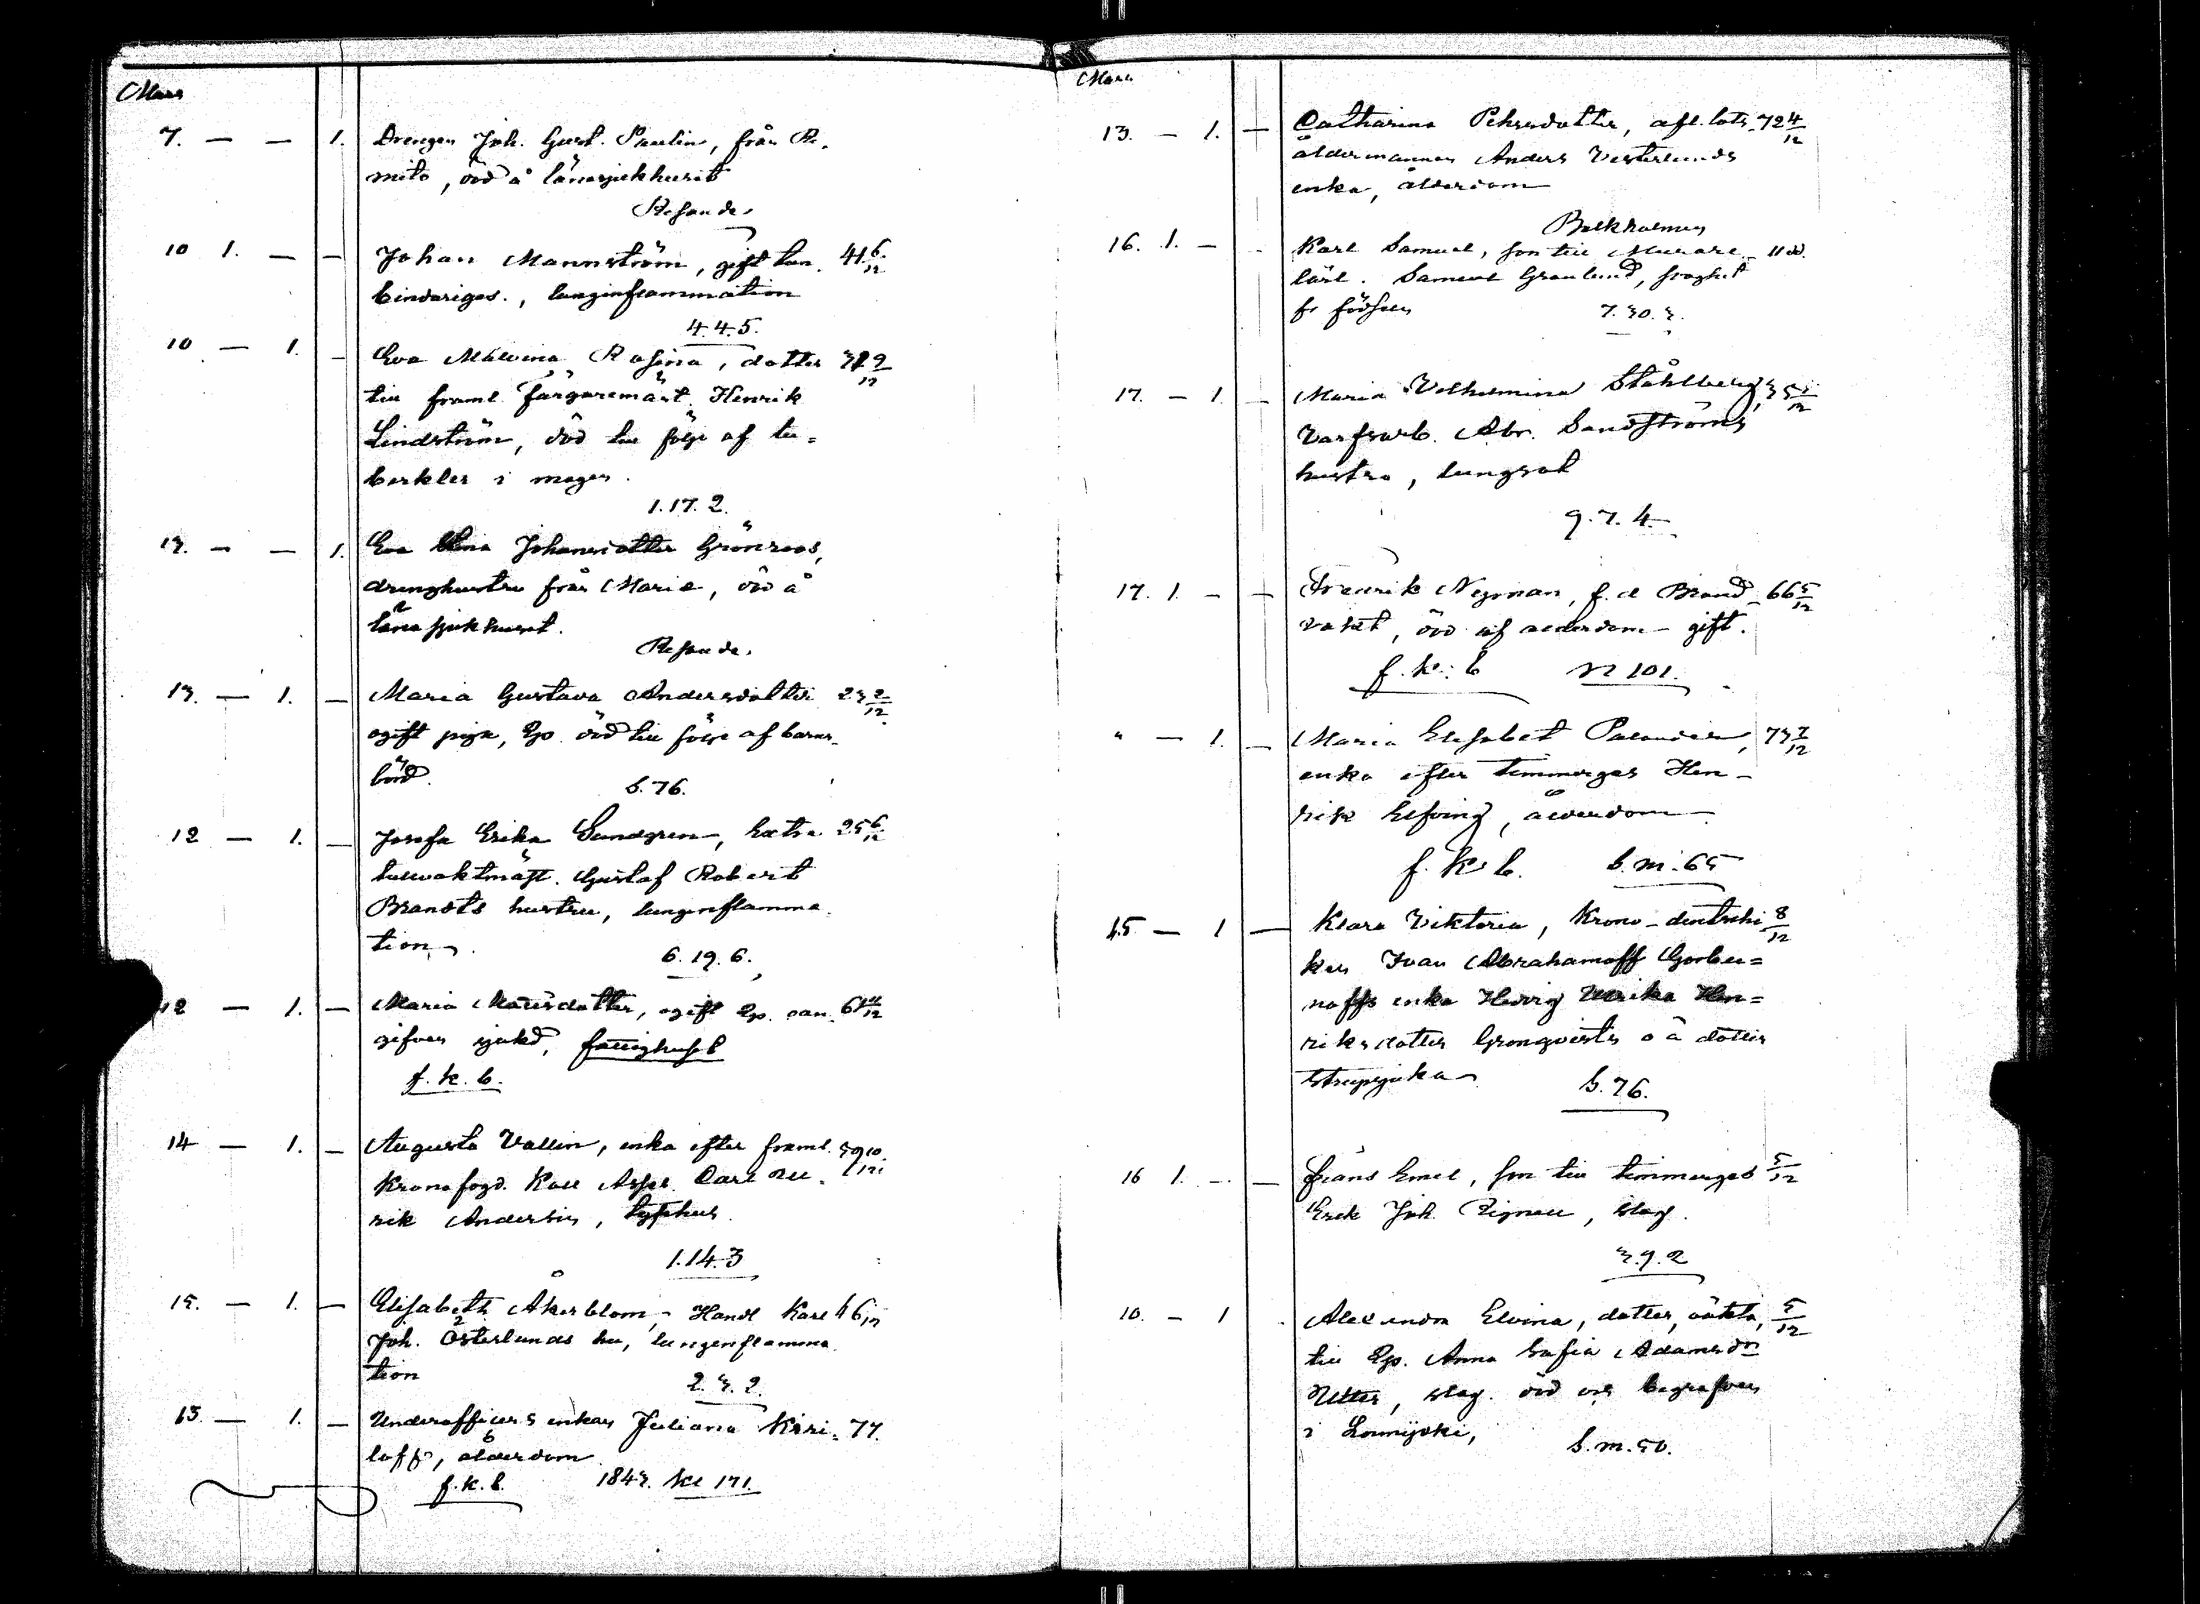 Mars
7. — — 1. Drengen Joh. Gust. Paulin, från Ri-
mito, död å länesjukhuset
Resande.
10 1. — — Johan Mannström, gift tun- 41 6/12
bindariges., lunginflammation
4.4.5.
10 — 1. — Eva Malvina Rosina, dotter 9/12
till framl. färgaremäst. Henrik
Lindström, död till följe af tu=
berkler i magen.
1.17.2.
13. — — 1. Eva Johansdotter Grönroos,
dränghustru från Marie, död å
länesjukhuset.
Resande.
13. — 1. — Maria Gustava Andersdotter 23 2/12
ogift piga, Ep. död till följe af barns-
börd.
S. 76.
12 — 1. — Josefa Erika Sundgren, Extra 25 6/12
tullvaktmäst. Gustaf Robert
Brandts hustru, lunginflamma-
tion.
6.19.6.
12 — 1. — Maria Matsdotter, ogift Ep. oan- 61
gifven sjukd., fattighuset
f.k.b.
14 — 1. — Augusta Vallin, enka efter framl. 39 10/12
Kronofogd. Koll. Asses. Carl
rik Andersin, typhus.
1.14.3
15. — 1. — Elisabeth Åkerblom, Handl Karl 46/12
Joh. Österlunds hu, lunginflamma-
tion
2.3.2.
13 — 1. — Underofficers enkan Juliana Kiri- 77.
loff, ålderdom
f.k.b. 1843. kl 171.
Mars
13. — 1. — Catharina Pehrsdotter, afl. lots- 72 4/12
åldermannen Anders Vesterlunds
enka, ålderdom
Beckholmen
16. 1. — - Karl Samuel, son till Murare- 11 d.
lärl. Samuel Granlund, svaghet
fr födseln 7.30.3.
17. — 1. — Maria Vilhelmina Ståhlberg, 35
Varfsarb. Abr. Sandströms
hustru, lungsot
9.7.4.
17. 1. — — Fredrik Nyman, f.d. Brand- 66 5/12
vakt, död af ålderdom — gift.
f.k.b N 101.
" — 1. — Maria Elisabet Palander, 73 7/12
enka efter timmerges Hen-
rik Elfving, ålderdom
f.k.b. S.m.65
15 — 1 — Klara Viktoria, Krono- 8/12
ken Ivan Abrahamoff Gorbu=
noffs enka Hedvig Ulrika Hen=
riksdotter Grönqvists o ä dotter
strupsjuka
S.76.
16 1. - — Frans Emil, son till timmerges 5/12
Erik Joh. Rignell, slag.
3.9.2
10. — 1 . Alexandra Elvina, dotter, oäkta, 5/12
till Ep. Anna Sofia Adamsdr
Utter, slag. död och begrafven
i Loimijoki,
S.m.50.